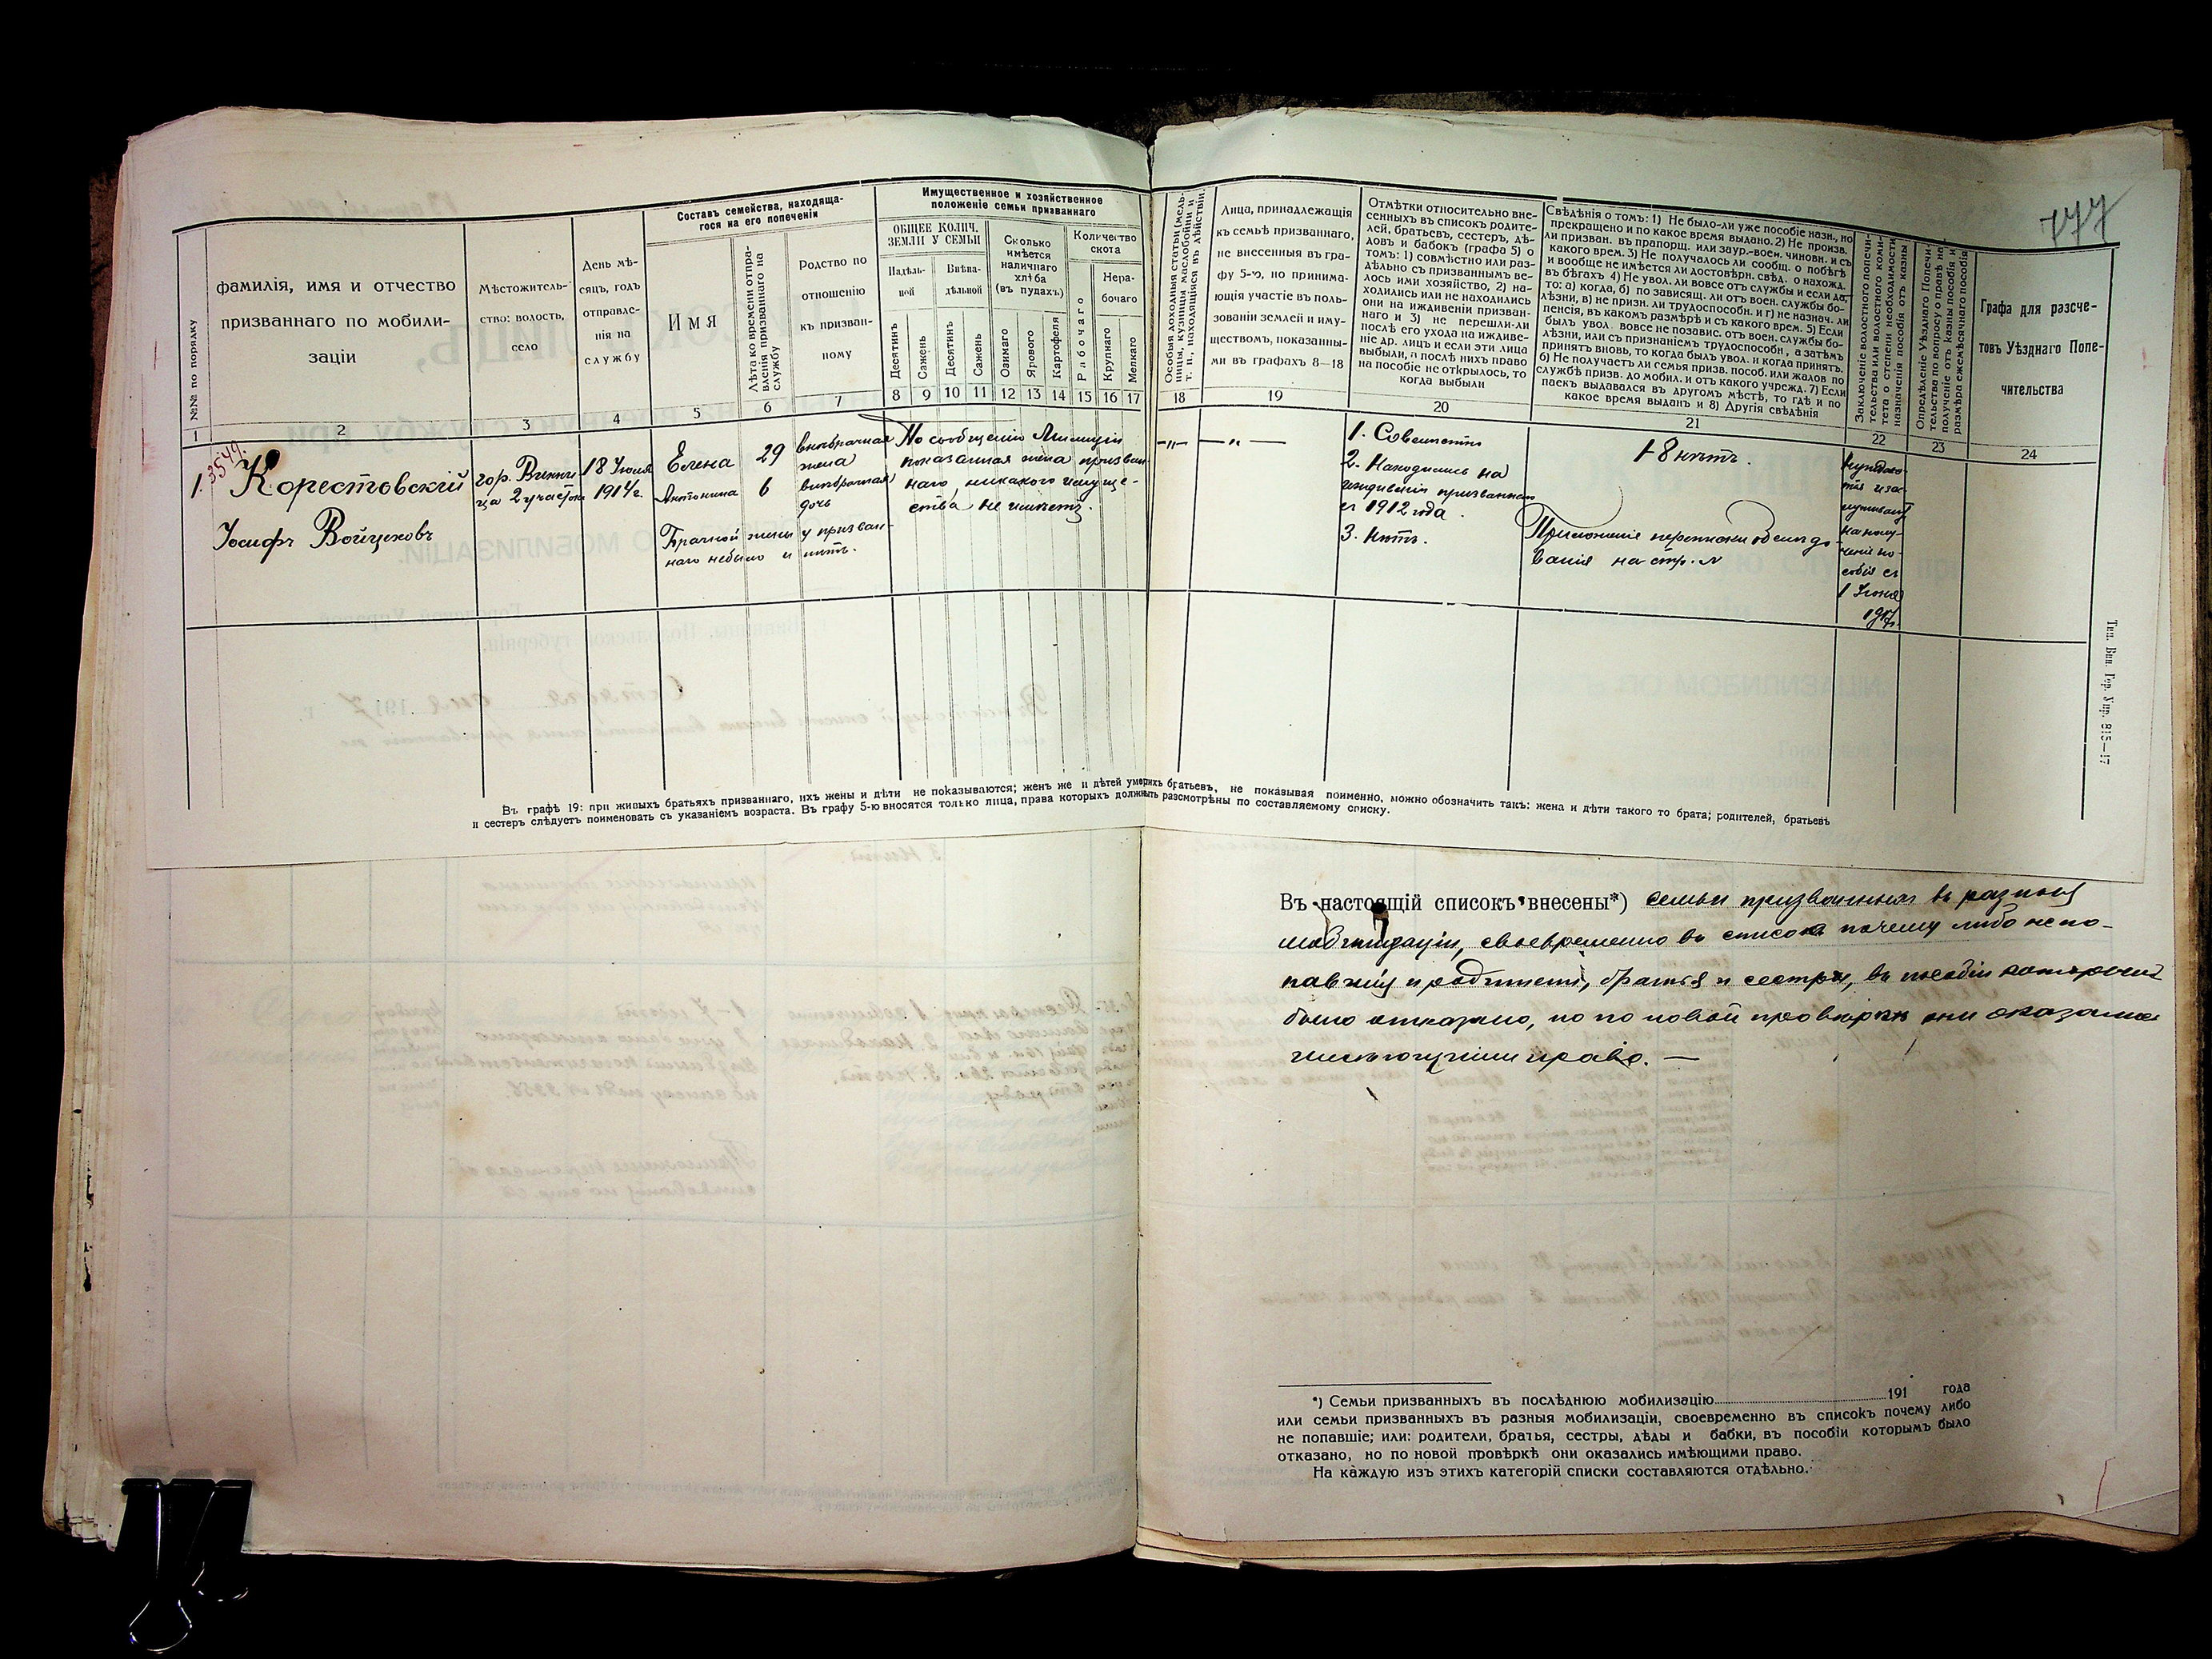 777
№№ по порядку
фамилія, имя и отчество
призваннаго по мобили-
заціи
Мѣстожитель-
ство: волость,
село
День мѣ-
сяцъ, годъ
отправле-
нія на
службу
Составъ семейства, находяща-
гося на его попеченіи
Имя
Лѣта ко времени отпра-
вленія призваннаго на
службу
Родство по
отношенію
къ призван-
ному
Имущественное и хозяйственное
положеніе семьи призваннаго
ОБЩЕЕ КОЛИЧ.
ЗЕМЛИ У СЕМЬИ
Надѣль-
ной
Внѣна-
дѣльной
Десятинъ
Сажень
Десятинъ
Сажень
Сколько
имѣется
наличнаго
хлѣба
(въ пудахъ)
Озимаго
Ярового
Картофеля
Количество
скота
Рабочаго
Нера-
бочаго
Крупнаго
Мелкаго
Особыя доходныя статьи (мель-
ницы, кузницы маслобойни и
т. п., находящіяся въ дѣйствіи.
Лица, принадлежащія
къ семьѣ призваннаго,
не внесенныя въ гра-
фу 5-ю, но принима-
ющія участіе въ поль-
зованіи землей и иму-
ществомъ, показанны-
ми въ графахъ 8—18
Отмѣтки относительно вне-
сенныхъ въ списокъ родите-
лей, братьевъ, сестеръ, дѣ-
довъ и бабокъ (графа 5) о
томъ: 1) совмѣстно или раз-
дѣльно съ призваннымъ ве-
лось ими хозяйство, 2) на-
ходились или не находились
они на иждивеніи призван-
наго и 3) не перешли-ли
послѣ его ухода на иждиве-
ніе др. лицъ и если эти лица
выбыли, а послѣ нихъ право
на пособіе не открылось, то
когда выбыли
Свѣдѣнія о томъ: 1) Не было-ли уже пособіе назн., но
прекращено и по какое время выдано. 2) Не произв.
ли призван. въ прапорщ. или заур.-воен. чиновн. и съ
какого врем. 3) Не получалось ли сообщ. о побѣгѣ
и вообще не имѣется ли достовѣрн. свѣд. о нахожд.
въ бѣгахъ 4) Не увол. ли вовсе отъ службы и если да,
то: а) когда, б) по зависящ. ли отъ воен. службы бо-
лѣзни, в) не призн. ли трудоспособн. и г) не назнач. ли
пенсія, въ какомъ размѣрѣ и съ какого врем. 5) Если
былъ увол. вовсе не позавис. отъ воен. службы бо-
лѣзни, или съ признаніемъ трудоспособн., а затѣмъ
принятъ вновь, то когда былъ увол. и когда принятъ.
6) Не получаетъ ли семья призв. пособ. или жалов по
службѣ призв. до мобил. и отъ какого учрежд. 7) Если
паекъ выдавался въ другомъ мѣстѣ, то гдѣ и по
какое время выданъ и 8) Другія свѣдѣнія
Заключеніе волостного попечи-
тельства или волостного коми-
тета о степени необходимости
назначенія пособія отъ казны
Опредѣленіе Уѣзднаго Попечи-
тельства по вопросу о правѣ на
полученіе отъ казны пособія и
размѣра ежемѣсячнаго пособія
Графа для разсче-
товъ Уѣзднаго Попе-
чительства
1 2 3 4 5 6 7 8 9 10 11 12 13 14 15 16 17 18 19 20 21 22 23 24
3549.
1. Корестовскій
Іосифъ Войцеховъ
гор. Винни
ца 2 участок
18 Іюля
1914 г.
Елена 29 внѣбрачная
жена
Антонина 6 внѣбрачная
дочь
Брачной жены у призван-
наго небыло и нѣтъ.
По сообщенію Милиціи
показанная жена призван
наго никакого имуще-
ства не имѣетъ.
—„— — „ —
1. Совместно
2. Находились на
иждивеніи призваннаго
съ 1912 года.
3. Нѣтъ.
1-8 нѣтъ.
Приложенія переписки обслѣдо-
ванія на стр. №
Нуждаю-
тся и зас-
луживаютъ
на полу-
ченіе по-
собія съ
1 Іюня
1917 г.
Въ графѣ 19: при живыхъ братьяхъ призваннаго, ихъ жены и дѣти не показываются; женъ же и дѣтей умерихъ братьевъ, не показывая поименно, можно обозначить такъ: жена и дѣти такого то брата; родителей, братьевъ
и сестеръ слѣдуетъ поименовать съ указаніемъ возраста. Въ графу 5-ю вносятся только лица, права которыхъ должныть разсмотрѣны по составляемому списку.
Тип. Вин. Гор. Упр. 815—17
Въ настоящій списокъ внесены*) семьи призванныхъ въ разныя
мобилизаціи, своевременно въ списокъ почему либо не по-
павшія и родители, братья и сестры, въ пособіи которымъ
было отказано, но по новой провѣркѣ они оказались
имѣющими право. —
*) Семьи призванныхъ въ послѣднюю мобилизацію 191 года
или семьи призванныхъ въ разныя мобилизаціи, своевременно въ списокъ почему либо
не попавшіе; или: родители, братья, сестры, дѣды и бабки, въ пособіи которымъ было
отказано, но по новой провѣркѣ они оказались имѣющими право.
На каждую изъ этихъ категорій списки составляются отдѣльно.